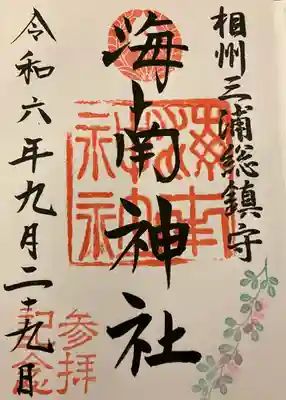 相州三浦総鎮守
海南神社
海南神社
令和六年九月二十九日
参拝
記念